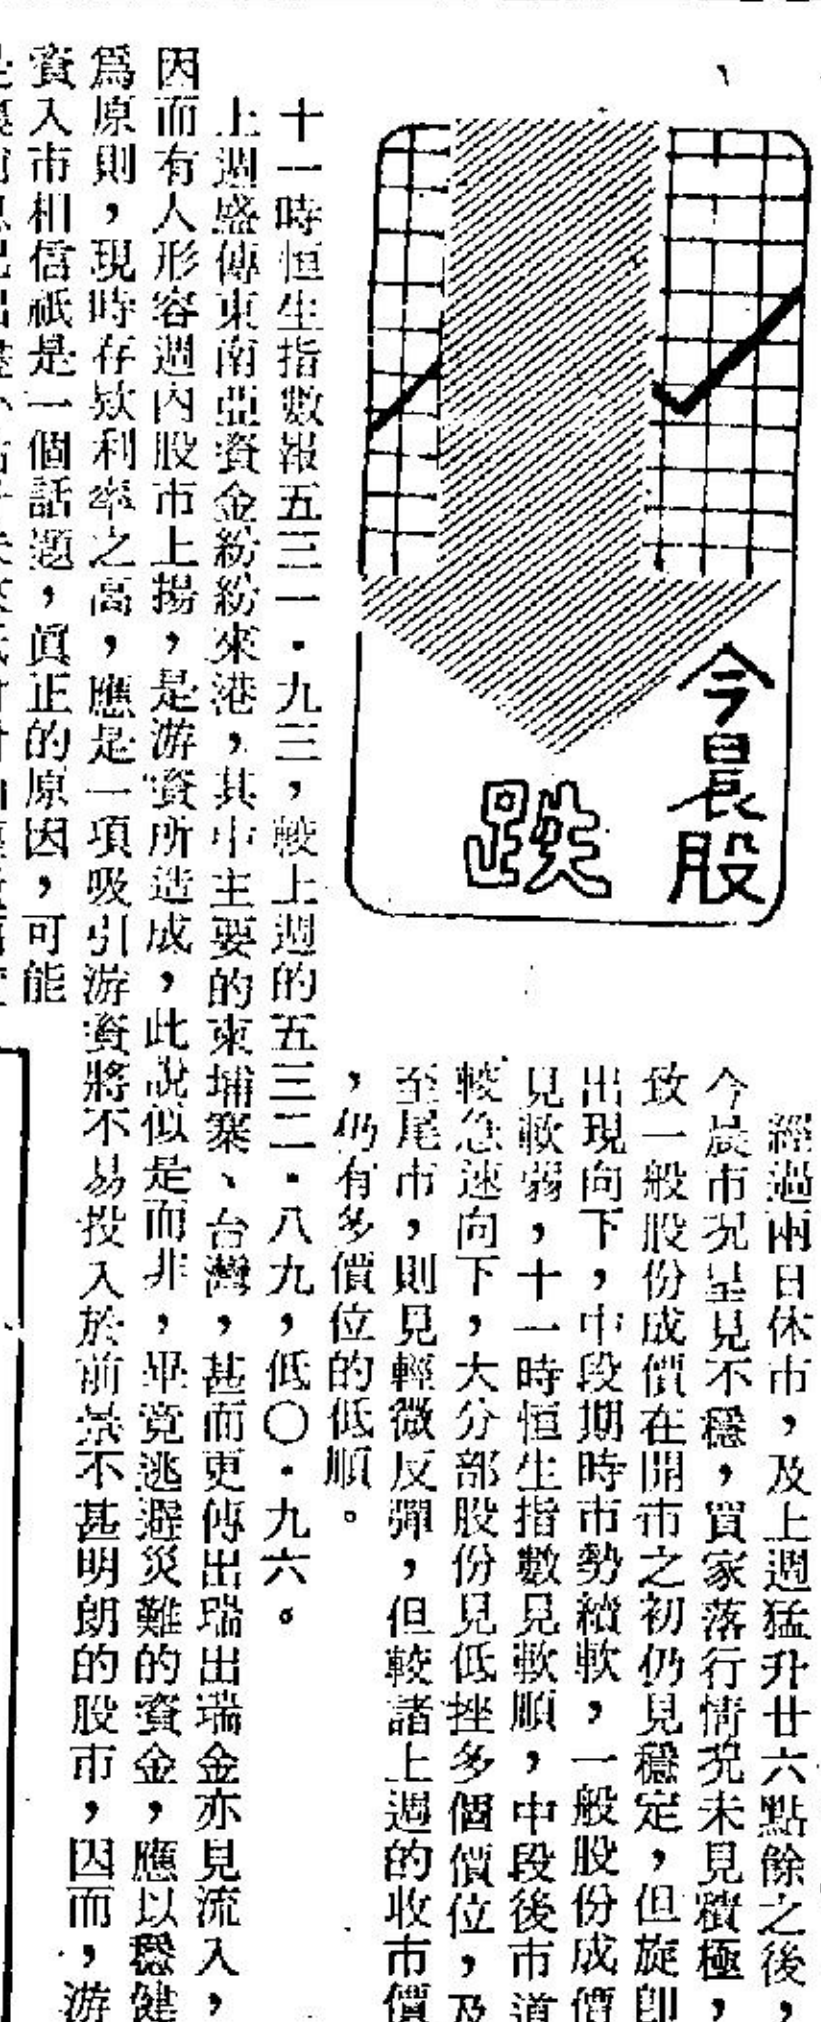 今晨股
跌
經過兩日休市，及上週猛升廿六點餘之後，
今晨市況呈見不穩，買家落行情況未見積極，
致一般股份成價在開市之初仍見穩定，但旋即
出現向下，中段期時市勢續軟，一般股份成價
見軟弱，十一時恒生指數見軟順，中段後市道
較急速向下，大分部股份見低挫多個價位，及
至尾市，則見輕微反彈，但較諸上週的收市價
，仍有多價位的低順。
十一時恒生指數報五三一．九三，較上週的五三二．八九，低〇．九六。
上週盛傳東南亞資金紛紛來港，其中主要的柬埔寨、台灣，甚而更傳出瑞出瑞金亦見流入，
因而有人形容週內股市上揚，是游資所造成，此說似是而非，畢竟逃避災難的資金，應以穩健
爲原則，現時存欵利率之高，應是一項吸引游資將不易投入於前景不甚明朗的股市，因而，游
資入市相信祇是一個話題，眞正的原因，可能